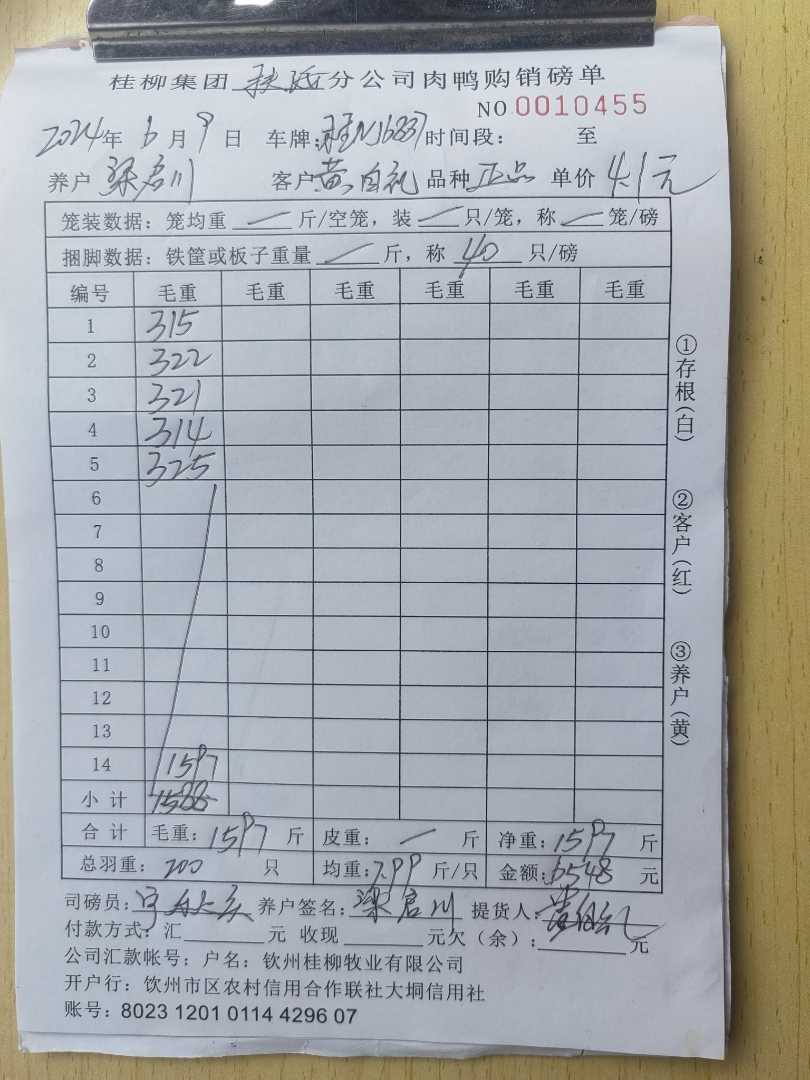 桂柳集团 分公司肉鸭购销磅单
NO 0010455
2024年 6月 9日 车牌: 时间段: 至
养户 梁启川 客户 黄自礼 品种 正品 单价 4.1元
笼装数据: 笼均重 — 斤/空笼, 装 — 只/笼, 称 — 笼/磅
捆脚数据: 铁筐或板子重量 — 斤, 称 40 只/磅
编号 毛重 毛重 毛重 毛重 毛重 毛重
1 315
2 322
3 321
4 314
5 325
6
7
8
9
10
11
12
13
14 1597
小 计
合 计 毛重: 1597 斤 皮重: — 斤 净重: 1597 斤
总羽重: 200 只 均重: 7.99 斤/只 金额: 6548 元
司磅员: 养户签名: 梁启川 提货人:
付款方式: 汇 元 收现 元欠(余): 元
公司汇款帐号: 户名: 钦州桂柳牧业有限公司
开户行: 钦州市区农村信用合作联社大垌信用社
账号: 8023 1201 0114 4296 07
①存根(白)
②客户(红)
③养户(黄)